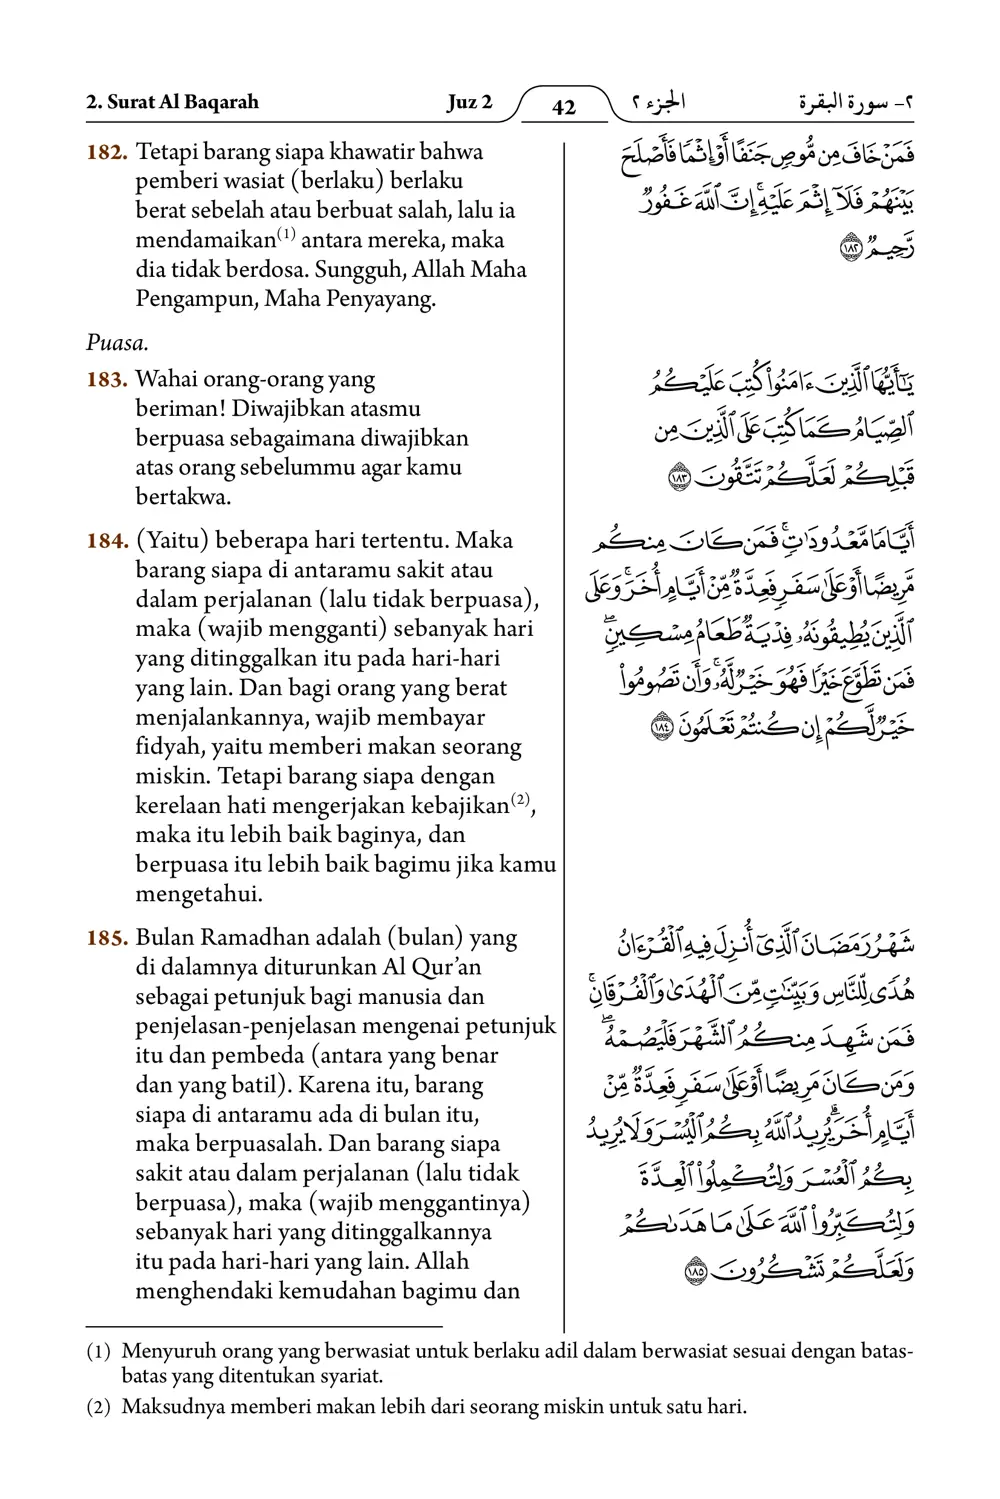 2. Surat Al Baqarah
Juz 2
42
الجزء ٢
٢- سورة البقرة
182. Tetapi barang siapa khawatir bahwa
pemberi wasiat (berlaku) berlaku
berat sebelah atau berbuat salah, lalu ia
mendamaikan(1) antara mereka, maka
dia tidak berdosa. Sungguh, Allah Maha
Pengampun, Maha Penyayang.
فَمَنْ خَافَ مِن مُّوصٍ جَنَفًا أَوْ إِثْمًا فَأَصْلَحَ
بَيْنَهُمْ فَلَآ إِثْمَ عَلَيْهِ ۚ إِنَّ ٱللَّهَ غَفُورٌ
رَّحِيمٌ ١٨٢
Puasa.
183. Wahai orang-orang yang
beriman! Diwajibkan atasmu
berpuasa sebagaimana diwajibkan
atas orang sebelummu agar kamu
bertakwa.
يَـٰٓأَيُّهَا ٱلَّذِينَ ءَامَنُوا۟ كُتِبَ عَلَيْكُمُ
ٱلصِّيَامُ كَمَا كُتِبَ عَلَى ٱلَّذِينَ مِن
قَبْلِكُمْ لَعَلَّكُمْ تَتَّقُونَ ١٨٣
184. (Yaitu) beberapa hari tertentu. Maka
barang siapa di antaramu sakit atau
dalam perjalanan (lalu tidak berpuasa),
maka (wajib mengganti) sebanyak hari
yang ditinggalkan itu pada hari-hari
yang lain. Dan bagi orang yang berat
menjalankannya, wajib membayar
fidyah, yaitu memberi makan seorang
miskin. Tetapi barang siapa dengan
kerelaan hati mengerjakan kebajikan(2),
maka itu lebih baik baginya, dan
berpuasa itu lebih baik bagimu jika kamu
mengetahui.
أَيَّامًا مَّعْدُودَٰتٍ ۚ فَمَن كَانَ مِنكُم
مَّرِيضًا أَوْ عَلَىٰ سَفَرٍ فَعِدَّةٌ مِّنْ أَيَّامٍ أُخَرَ ۚ وَعَلَى
ٱلَّذِينَ يُطِيقُونَهُۥ فِدْيَةٌ طَعَامُ مِسْكِينٍ ۖ
فَمَن تَطَوَّعَ خَيْرًا فَهُوَ خَيْرٌ لَّهُۥ ۚ وَأَن تَصُومُوا۟
خَيْرٌ لَّكُمْ ۖ إِن كُنتُمْ تَعْلَمُونَ ١٨٤
185. Bulan Ramadhan adalah (bulan) yang
di dalamnya diturunkan Al Qur’an
sebagai petunjuk bagi manusia dan
penjelasan-penjelasan mengenai petunjuk
itu dan pembeda (antara yang benar
dan yang batil). Karena itu, barang
siapa di antaramu ada di bulan itu,
maka berpuasalah. Dan barang siapa
sakit atau dalam perjalanan (lalu tidak
berpuasa), maka (wajib menggantinya)
sebanyak hari yang ditinggalkannya
itu pada hari-hari yang lain. Allah
menghendaki kemudahan bagimu dan
شَهْرُ رَمَضَانَ ٱلَّذِىٓ أُنزِلَ فِيهِ ٱلْقُرْءَانُ
هُدًى لِّلنَّاسِ وَبَيِّنَـٰتٍ مِّنَ ٱلْهُدَىٰ وَٱلْفُرْقَانِ ۚ
فَمَن شَهِدَ مِنكُمُ ٱلشَّهْرَ فَلْيَصُمْهُ ۖ
وَمَن كَانَ مَرِيضًا أَوْ عَلَىٰ سَفَرٍ فَعِدَّةٌ مِّنْ
أَيَّامٍ أُخَرَ ۗ يُرِيدُ ٱللَّهُ بِكُمُ ٱلْيُسْرَ وَلَا يُرِيدُ
بِكُمُ ٱلْعُسْرَ وَلِتُكْمِلُوا۟ ٱلْعِدَّةَ
وَلِتُكَبِّرُوا۟ ٱللَّهَ عَلَىٰ مَا هَدَىٰكُمْ
وَلَعَلَّكُمْ تَشْكُرُونَ ١٨٥
(1) Menyuruh orang yang berwasiat untuk berlaku adil dalam berwasiat sesuai dengan batas-
batas yang ditentukan syariat.
(2) Maksudnya memberi makan lebih dari seorang miskin untuk satu hari.